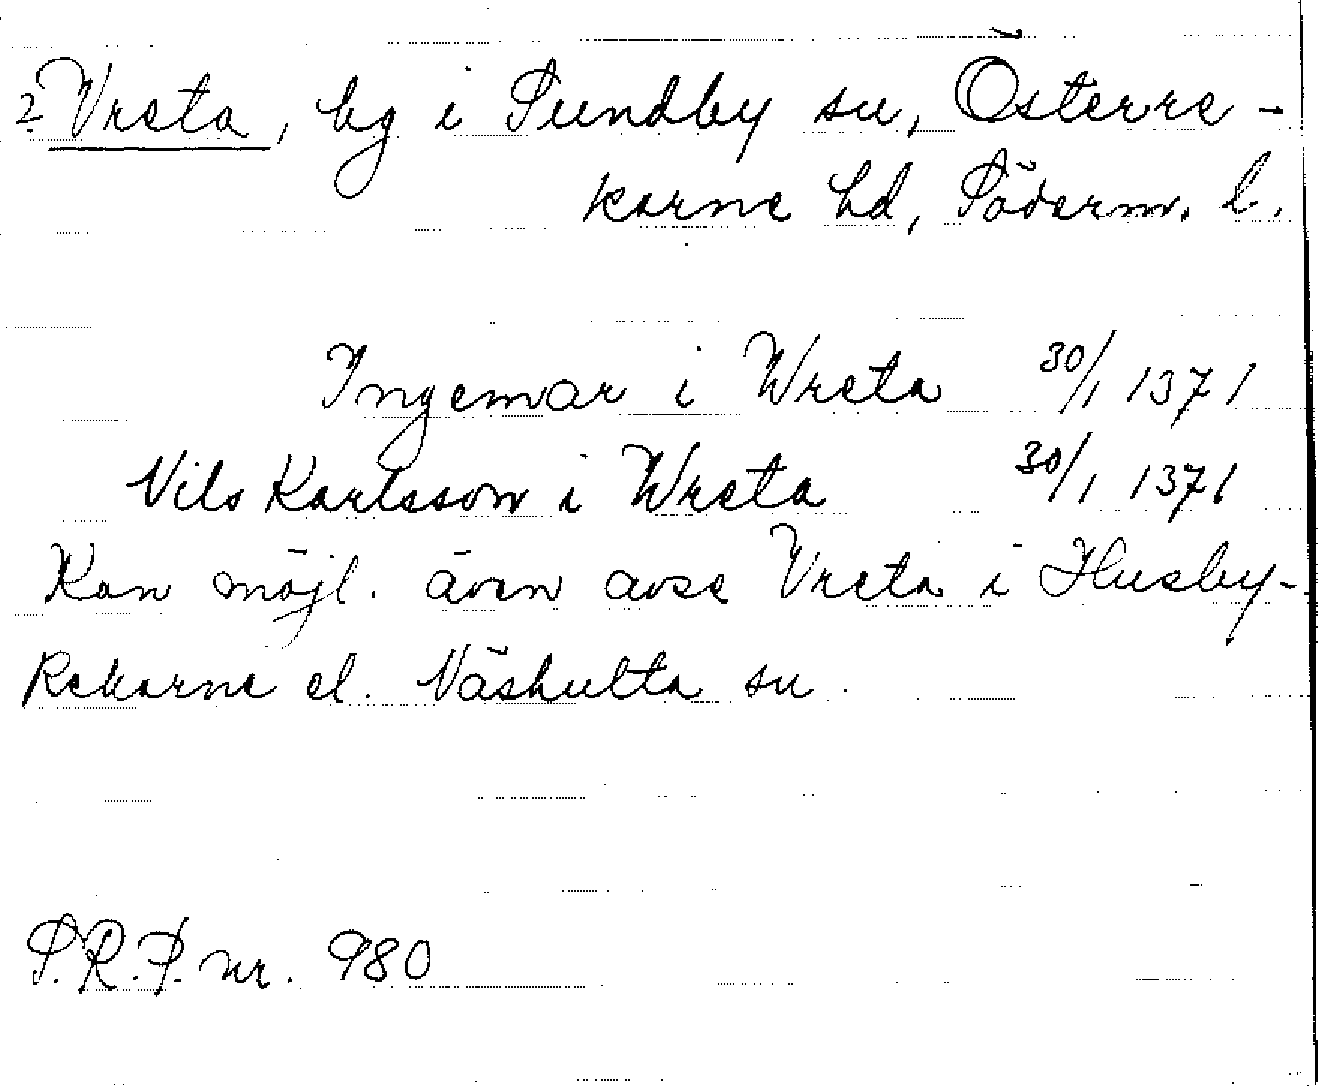 ? Vreta, bg i Sundby sn, Österre-
karne hd, Söderm. l.
Ingemar i Wreta 30/1 1371
Nils Karlsson i Wreta 30/1 1371
Kan möjl. även avse Vreta i Husby-
Rekarne el. Näshulta sn.
S.R.P. nr. 980